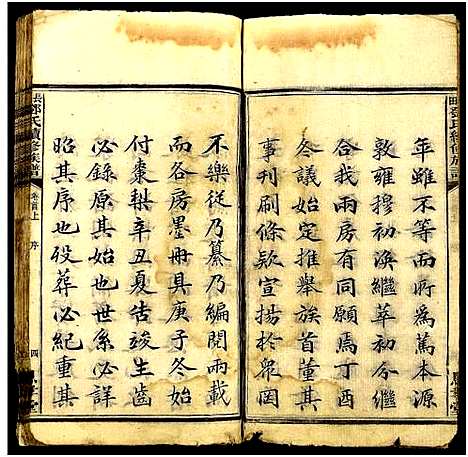 年雖不等而所為篤本源
敦雍穆初渙繼萃初今繼
合我兩房有同願焉丁酉
冬議始定推舉族首董其
事刊刷條欵宣揚於眾罔
不樂從乃纂乃編閱兩載
而各房墨冊具庚子冬始
付棗梨辛丑夏告竣生齒
必錄原其始也世系必詳
昭其序也殁葬必紀重其
鄧氏續修族譜
卷首上
序
四